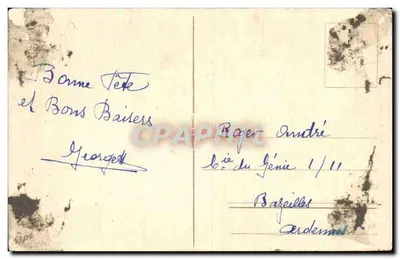 Bonne Fête
et Bons Baisers
Georgett
Roger André
Cie du Génie 1/11
Bazeilles
Ardennes